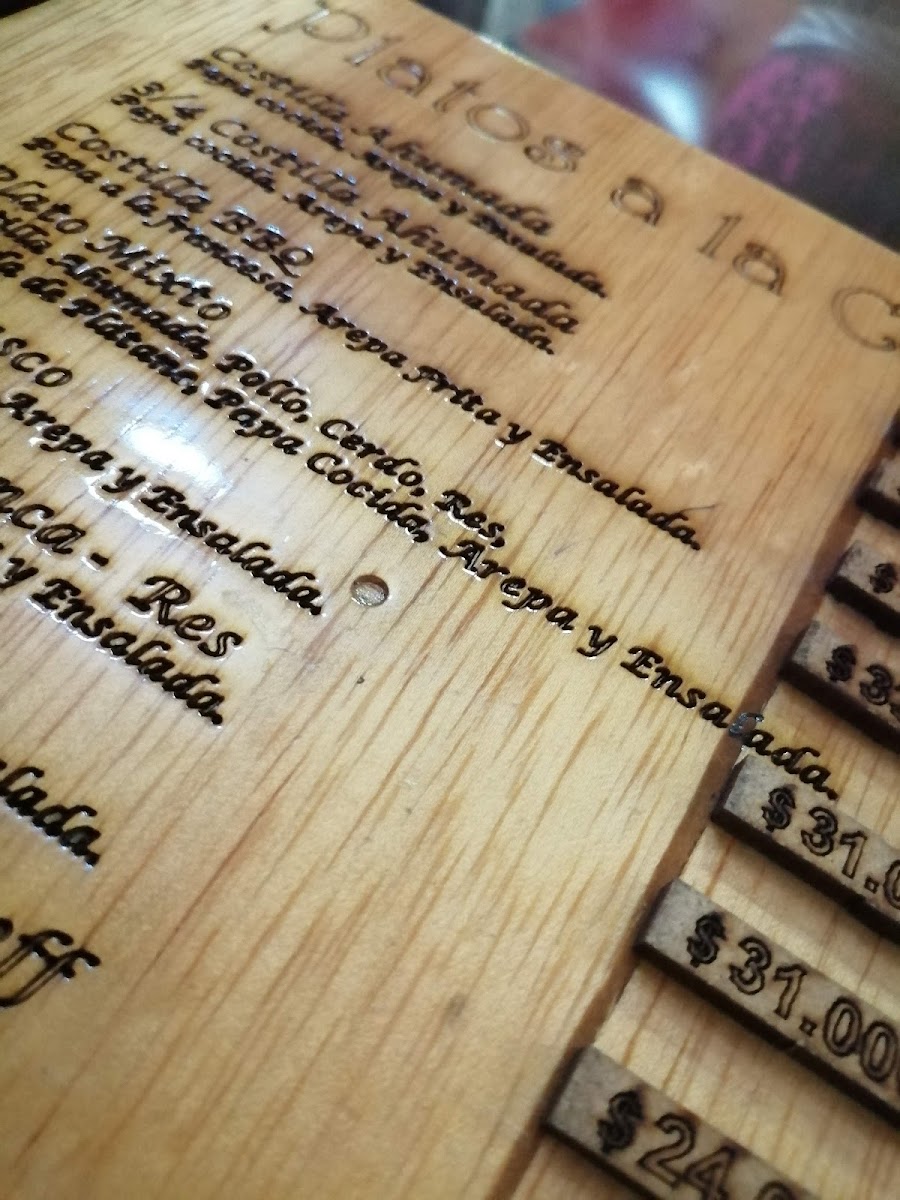 Platos a la C
Costilla Ahumada
Papa cocida, Arepa y Ensalada.
3/4 Costilla Ahumada
Papa cocida, Arepa y Ensalada.
Costilla BBQ
Papa a la francesa, Arepa frita y Ensalada.
Plato Mixto
Ahumada, Pollo, Cerdo, Res,
de Platano, Papa Cocida, Arepa y Ensalada.
sco
Arepa y Ensalada.
nca - Res
y Ensalada.
alada.
off
$
$ 3
$ 31.0
$ 31.00
$ 24.